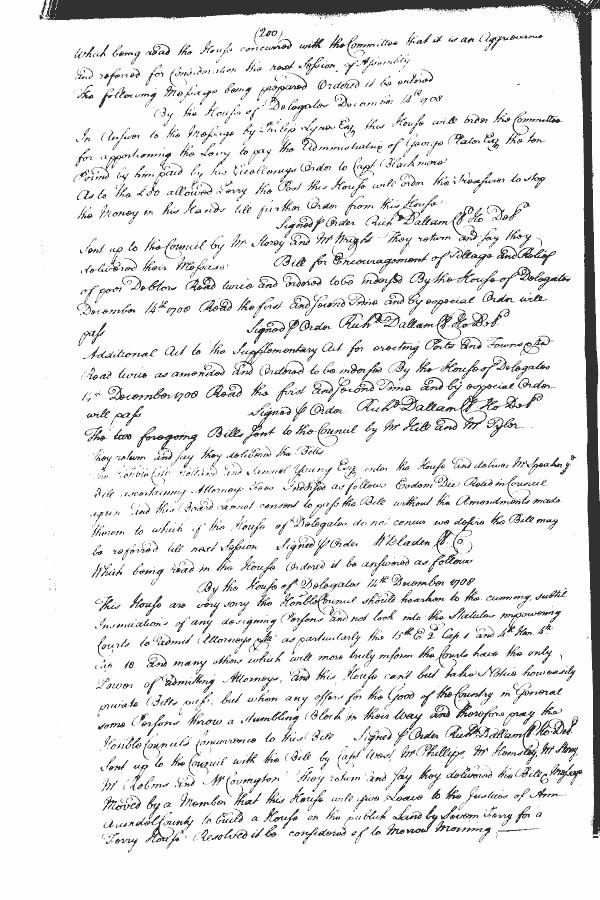 (200)
Which being read the House concurred with the Committee that it is an Aggrievance
and referred for Consideration the next Session of Assembly
The following Message being prepared Ordered it be entered
By the House of Delegates December 14th 1708
In Answer to the Message by Philip Lynes Esq this House will order the Committee
for apportioning the Levy to pay the Administratrix of George Plater Esq the ten
Pound by him paid by his Excellencys Order to Capt Blackmore
As to the £30 allowed Perry the Post this House will order the Treasurer to stop
the Money in his Hands till further Order from this House
Signed p Order Richd Dallam Cl Ho Del
Sent up to the Council by Mr Storey and Mr Wright They return and say they
delivered their Message Bill for Encouragement of Tillage and Relief
of poor Debtors Read twice and ordered to be indorsed By the House of Delegates
December 14th 1708 Read the first and second Time and by especial Order will
pass Signed p Order Richd Dallam Cl Ho Del
Additional Act to the Supplementary Act for erecting Ports and Towns &ca
Read twice as amended and Ordered to be indorsed By the House of Delegates
14th December 1708 Read the first and second Time and by especial Order
will pass Signed p Order Richd Dallam Cl Ho Del
The two foregoing Bills sent to the Council by Mr Hill and Mr Tyler
They return and say they delivered the Bills
Holland and Samuel Young Esq enter the House and deliver Mr Speaker ye
Bill ascertaining Attorneys Fees Indorsed as follows Eodem Die Read in Council
again and this Board cannot consent to pass the Bill without the Amendments made
thereon to which if the House of Delegates do not concur we desire the Bill may
be referred till next Session Signed p Order W Bladen Cl C
Which being read in the House Ordered it be answered as follows
By the House of Delegates 14th December 1708
This House are very sorry the Honble Council should hearken to the cunning subtil
Insinuations of any designing Persons and not look into the Statutes impowering
Courts to admit Attorneys &ca as particularly the 15th E 2 Cap 1 and 4th Hen 4th
Cap 18 and many others which will more truly inform the Courts have the only
Power of admitting Attorneys, and this House can't but take Notice how easily
private Bills pass, but when any offers for the Good of the Country in General
some Persons throw a Stumbling Block in their Way and therefore pray the
Honble Councils Concurrence to this Bill Signed p Order Richd Dallam Cl Ho Del
Sent up to the Council with the Bill by Capt West, Mr Phillips, Mr Hemsley, Mr Storey
Mr Robins and Mr Covington They return and say they delivered the Bill & Message
Moved by a Member that this House will give Leave to the Justices of Ann
Arundel County to build a House on the publick Land by Severn Ferry for a
Ferry House Resolved it be considered of to Morrow Morning